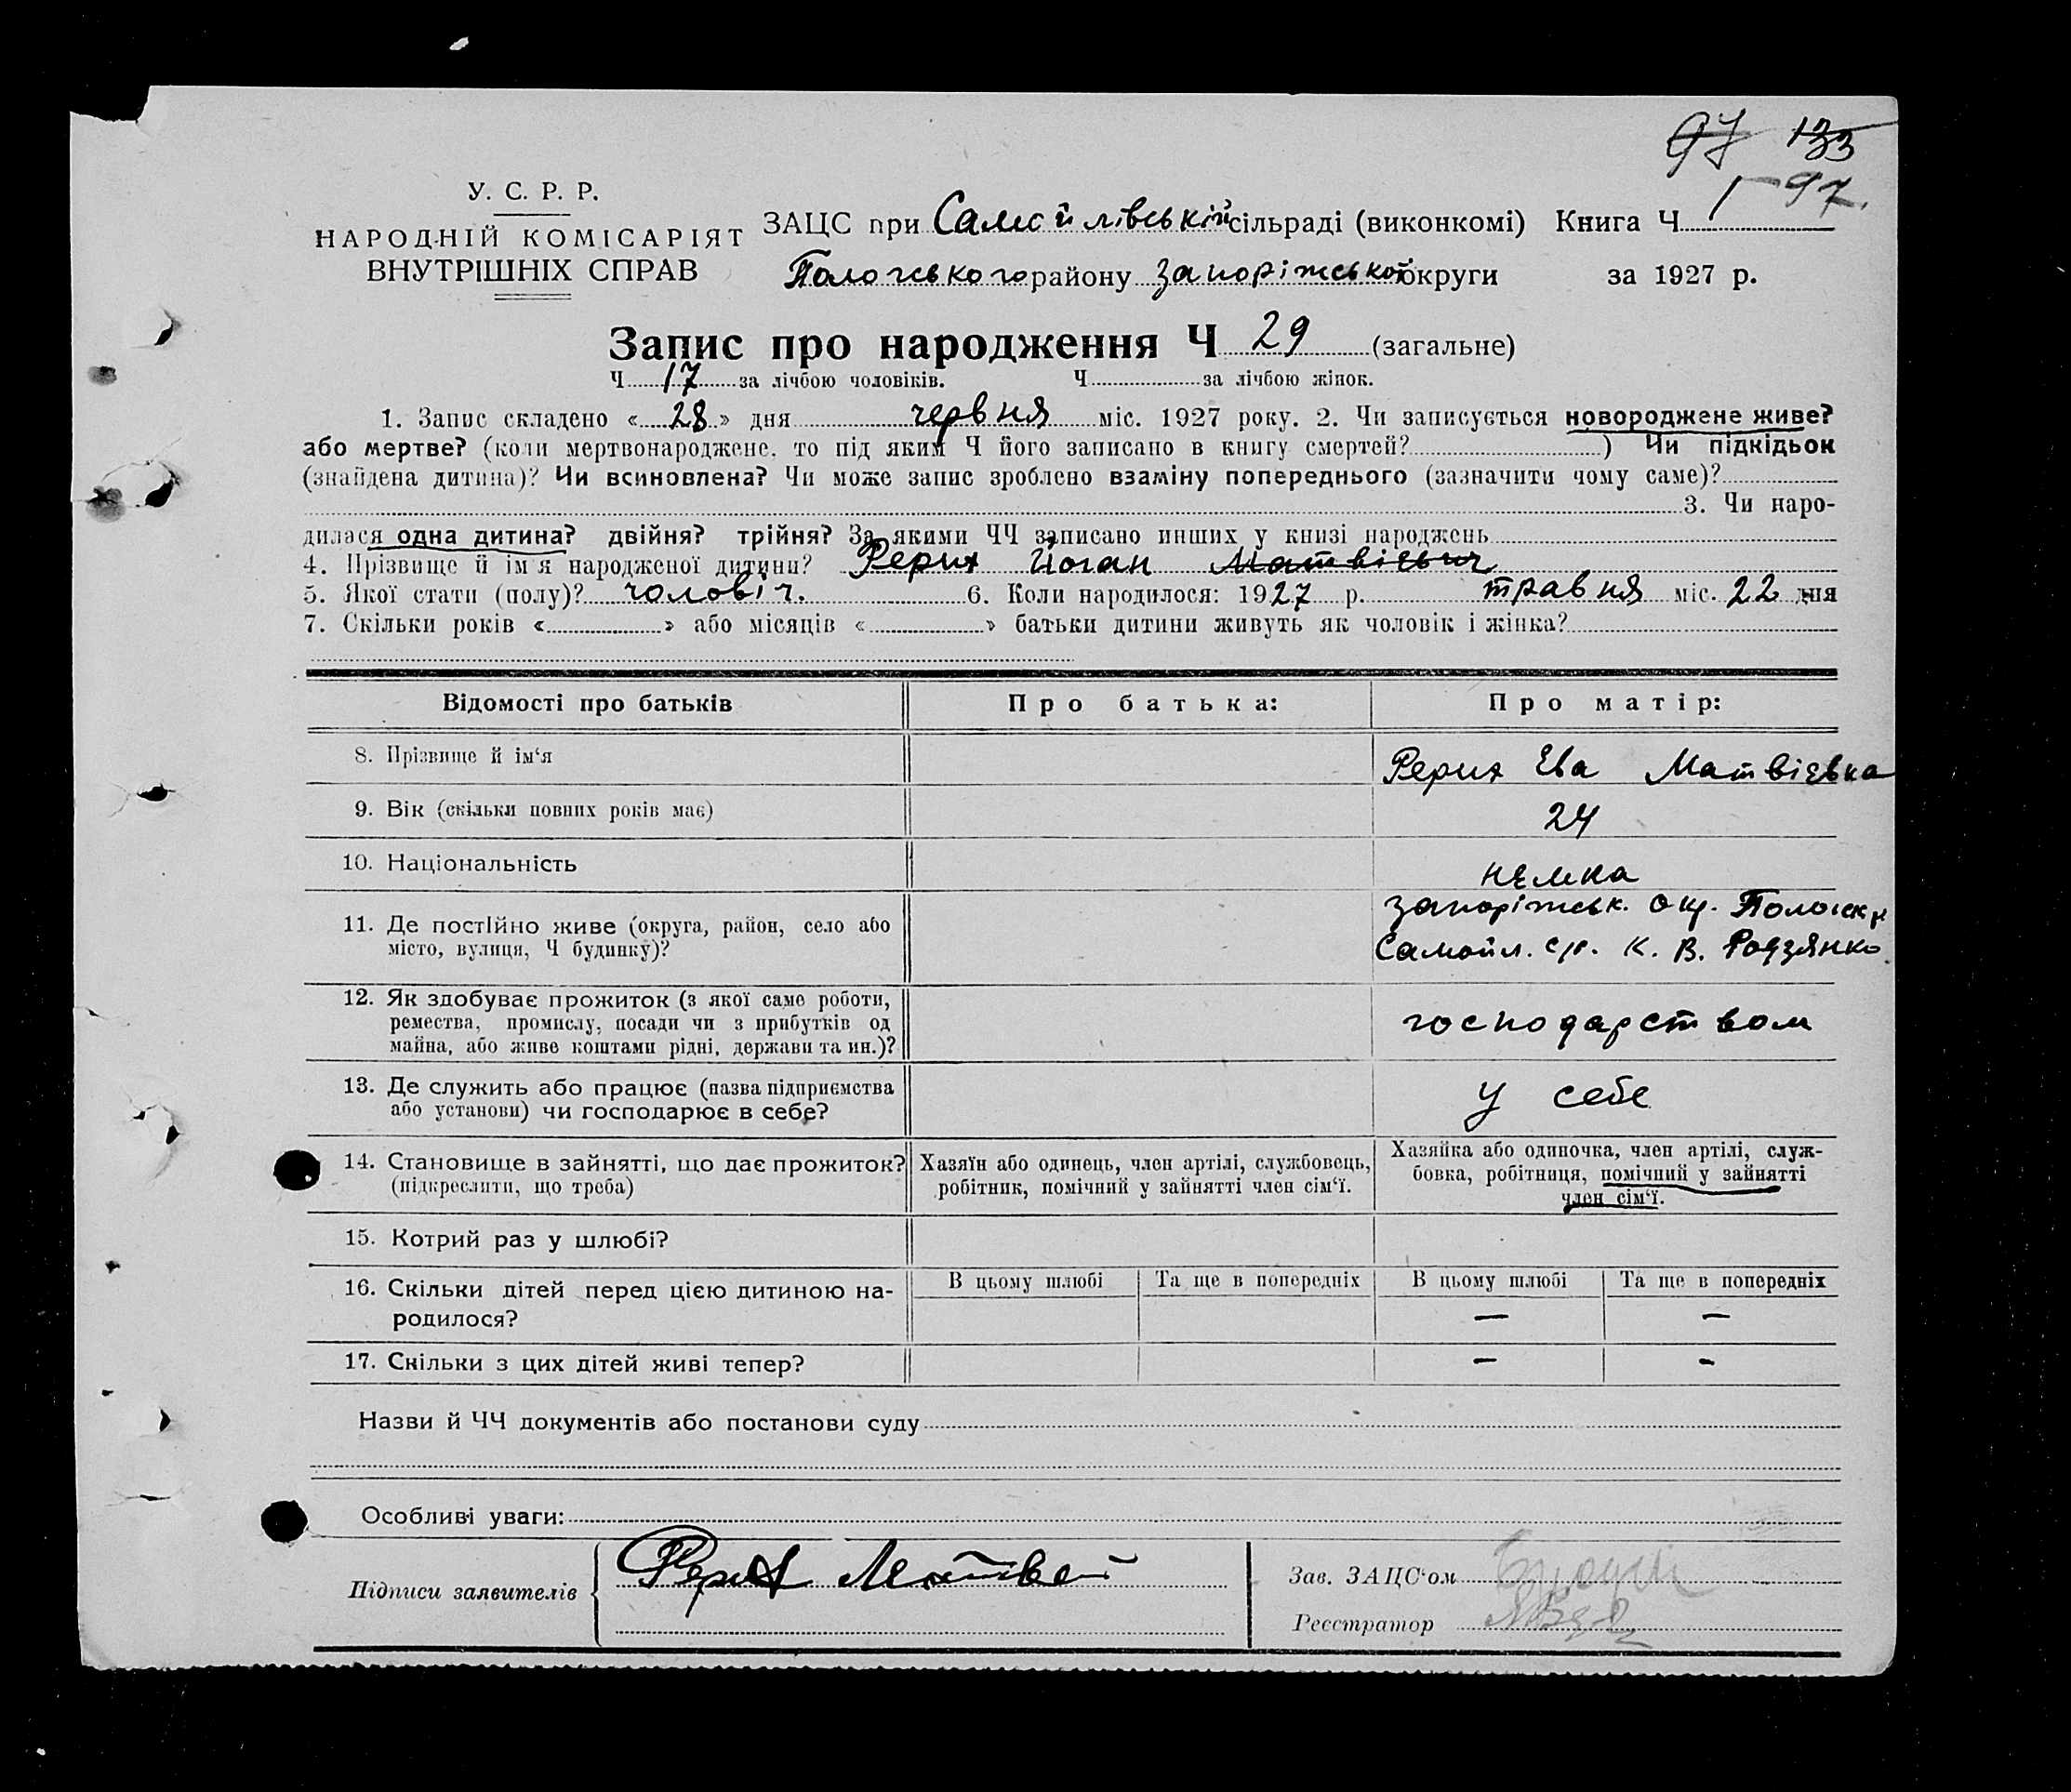 97 133
1-97.
У. С. Р. Р.
НАРОДНІЙ КОМІСАРІЯТ
ВНУТРІШНІХ СПРАВ
ЗАЦС при Самойлівській сільраді (виконкомі) Книга Ч
Пологського району Запоріжської округи за 1927 р.
Запис про народження Ч 29 (загальне)
Ч 17 за лічбою чоловіків. Ч за лічбою жінок.
1. Запис складено « 28 » дня червня міс. 1927 року. 2. Чи записується новороджене живе?
або мертве? (коли мертвонароджене, то під яким Ч його записано в книгу смертей? ) Чи підкідьок
(знайдена дитина)? Чи всиновлена? Чи може запис зроблено взаміну попереднього (зазначити чому саме)?
3. Чи наро-
дилася одна дитина? двійня? трійня? За якими ЧЧ записано инших у книзі народжень
4. Прізвище й ім'я народженої дитини? Рерих Йоган Матвієвич
5. Якої стати (полу)? чоловіч. 6. Коли народилося: 1927 р. травня міс. 22 дня
7. Скільки років « » або місяців « » батьки дитини живуть як чоловік і жінка?
Відомості про батьків Про батька: Про матір:
8. Прізвище й ім'я Рерих Ева Матвієвна
9. Вік (скільки повних років має) 24
10. Національність немка
11. Де постійно живе (округа, район, село або
місто, вулиця, Ч будинку)?
запоріжськ. окр. Пологск р
Самойл. с/р. К. В. Родзянко
12. Як здобуває прожиток (з якої саме роботи,
ремества, промислу, посади чи з прибутків од
майна, або живе коштами рідні, держави та ин.)?
господарством
13. Де служить або працює (назва підприємства
або установи) чи господарює в себе?
у себе
14. Становище в зайнятті, що дає прожиток?
(підкреслити, що треба)
Хазяїн або одинець, член артілі, службовець,
робітник, помічний у зайнятті член сім'ї.
Хазяйка або одиночка, член артілі, служ-
бовка, робітниця, помічний у зайнятті
член сім'ї.
15. Котрий раз у шлюбі?
16. Скільки дітей перед цією дитиною на-
родилося?
В цьому шлюбі Та ще в попередніх В цьому шлюбі Та ще в попередніх
— —
17. Скільки з цих дітей живі тепер? — -
Назви й ЧЧ документів або постанови суду
Особливі уваги:
Підписи заявителів Рерих Матвей
Зав. ЗАЦС'ом
Реєстратор